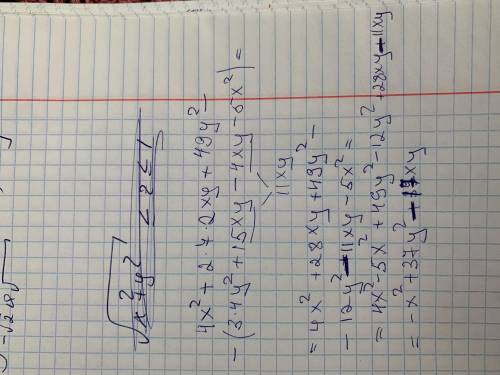 -√2·8
√x²+y² < 2 < 1
4x² + 2·7·2xy + 49y² -
- (3·4y² + 15xy - 4xy - 5x²) =
11xy
= 4x² + 28xy + 49y² -
- 12y² - 11xy - 5x² =
= 4x² - 5x² + 49y² - 12y² + 28xy - 11xy
= -x² + 37y² - xy